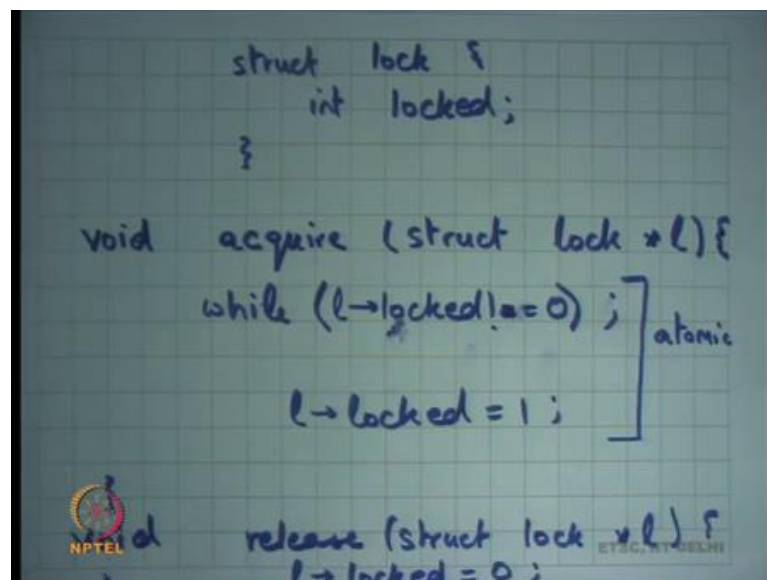 struct lock {
int locked;
}
void acquire (struct lock *l) {
while (l→locked != 0) ;
atomic
l→ locked = 1 ;
}
void release (struct lock *l) {
l→ locked = 0 ;
NPTEL
ETSC, IIT DELHI